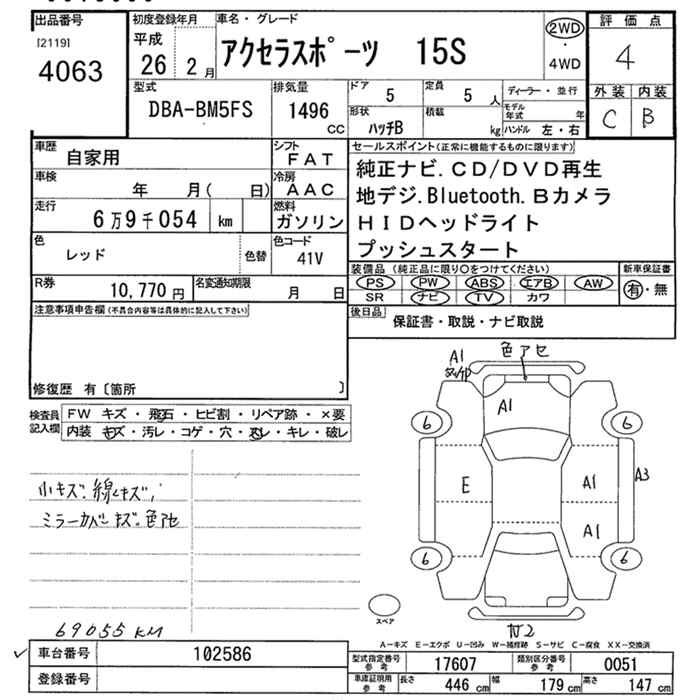 出品番号
[2119]
4063
初度登録年月
平成
26 2月
車名・グレード
アクセラスポーツ 15S
2WD
・
4WD
評価点
4
外装 内装
C B
型式
DBA-BM5FS
排気量
1496
CC
ドア
5
定員
5 人
形状
ハッチB
積載
kg
ディーラー・並行
モデル年式 年
ハンドル 左・右
車歴
自家用
シフト
FAT
車検
年 月( 日)
冷房
AAC
走行
6万9千054 km
燃料
ガソリン
色
レッド
色替
色コード
41V
R券
10,770円
名変通知期限
月 日
セールスポイント(正常に機能するものに限ります)
純正ナビ.CD/DVD再生
地デジ.Bluetooth.Bカメラ
HIDヘッドライト
プッシュスタート
装備品(純正品に限り○をつけてください)
PS PW ABS エアB AW
SR ナビ TV カワ
新車保証書
有・無
後日品
保証書・取説・ナビ取説
注意事項申告欄(不具合内容等は具体的に記入して下さい)
修復歴 有〔箇所 〕
検査員記入欄
FW キズ・飛石・ヒビ割・リペア跡・×要
内装 キズ・汚レ・コゲ・穴・スレ・キレ・破レ
小キズ、線キズ、
ミラーカバーキズ、色アセ
69055 KM
A1
色アセ
A1
6
6
E
A1
A3
A1
6
6
スペア
A-キズ E-エクボ U-凹み W-補修跡 S-サビ C-腐食 XX-交換済
車台番号
102586
登録番号
型式指定番号参考
17607
類別区分番号参考
0051
車庫証明用参考
長さ 446 cm
幅 179 cm
高さ 147 cm